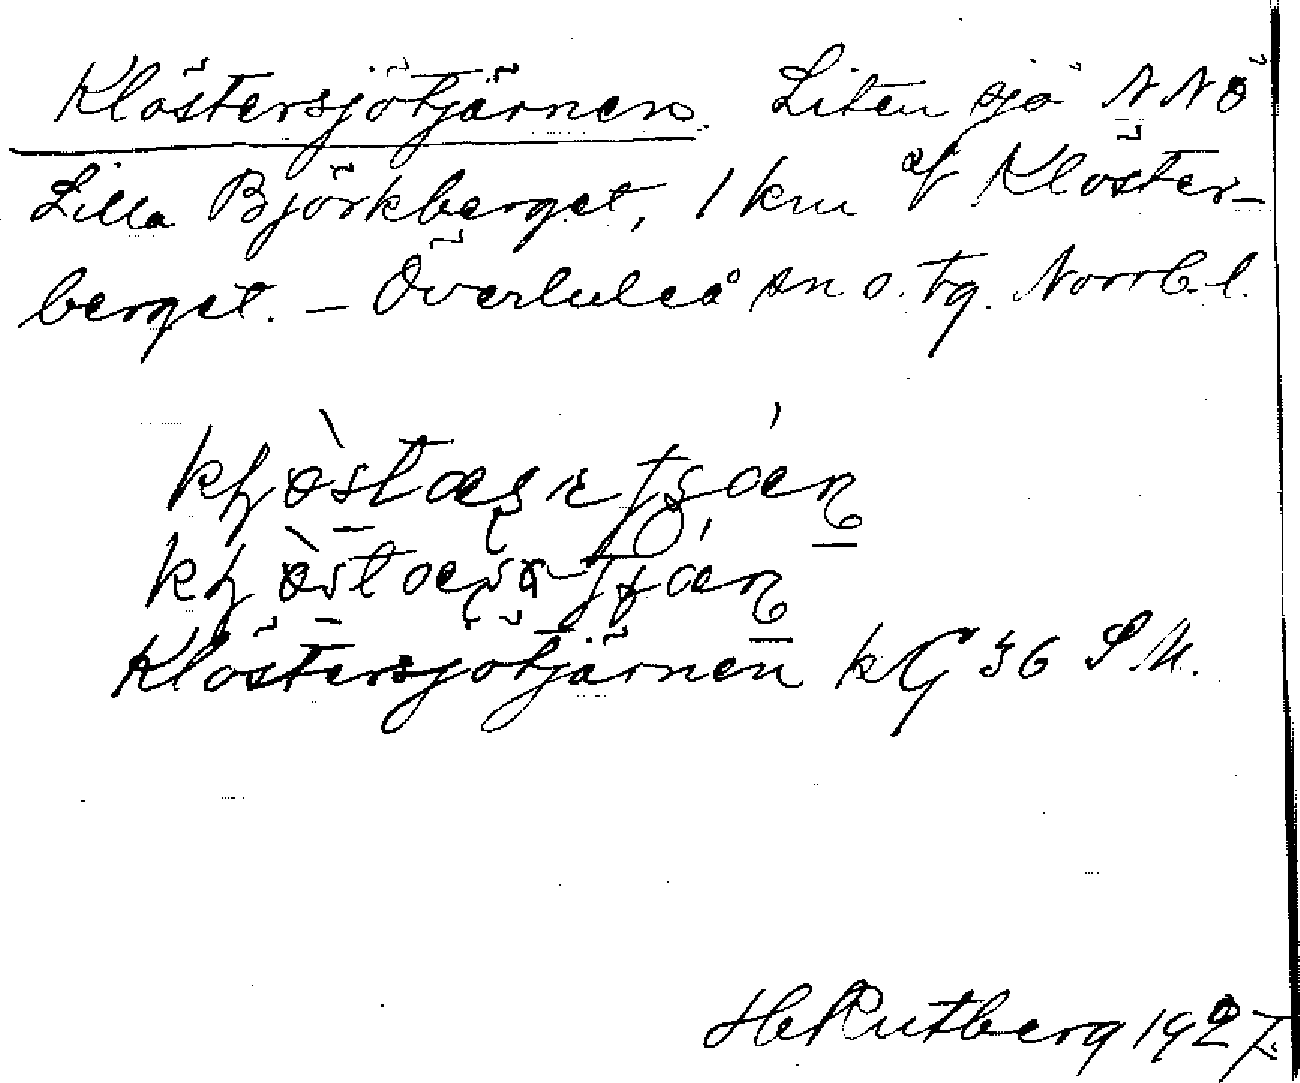 Klöstersjötjärnen. Liten sjö NNÖ
Lilla Björkberget, 1 km af Klöster-
berget. – Överluleå sn o. tg. Norrb. l.
Klöstersjötjärnen kG 36 S.M.
H. Rutberg 1927.